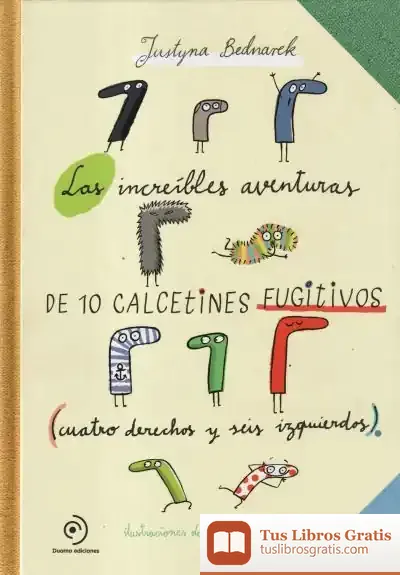 Justyna Bednarek
Las increíbles aventuras
DE 10 CALCETINES FUGITIVOS
(cuatro derechos y seis izquierdos).
ilustraciones de
Duomo ediciones
Tus Libros Gratis
tuslibrosgratis.com